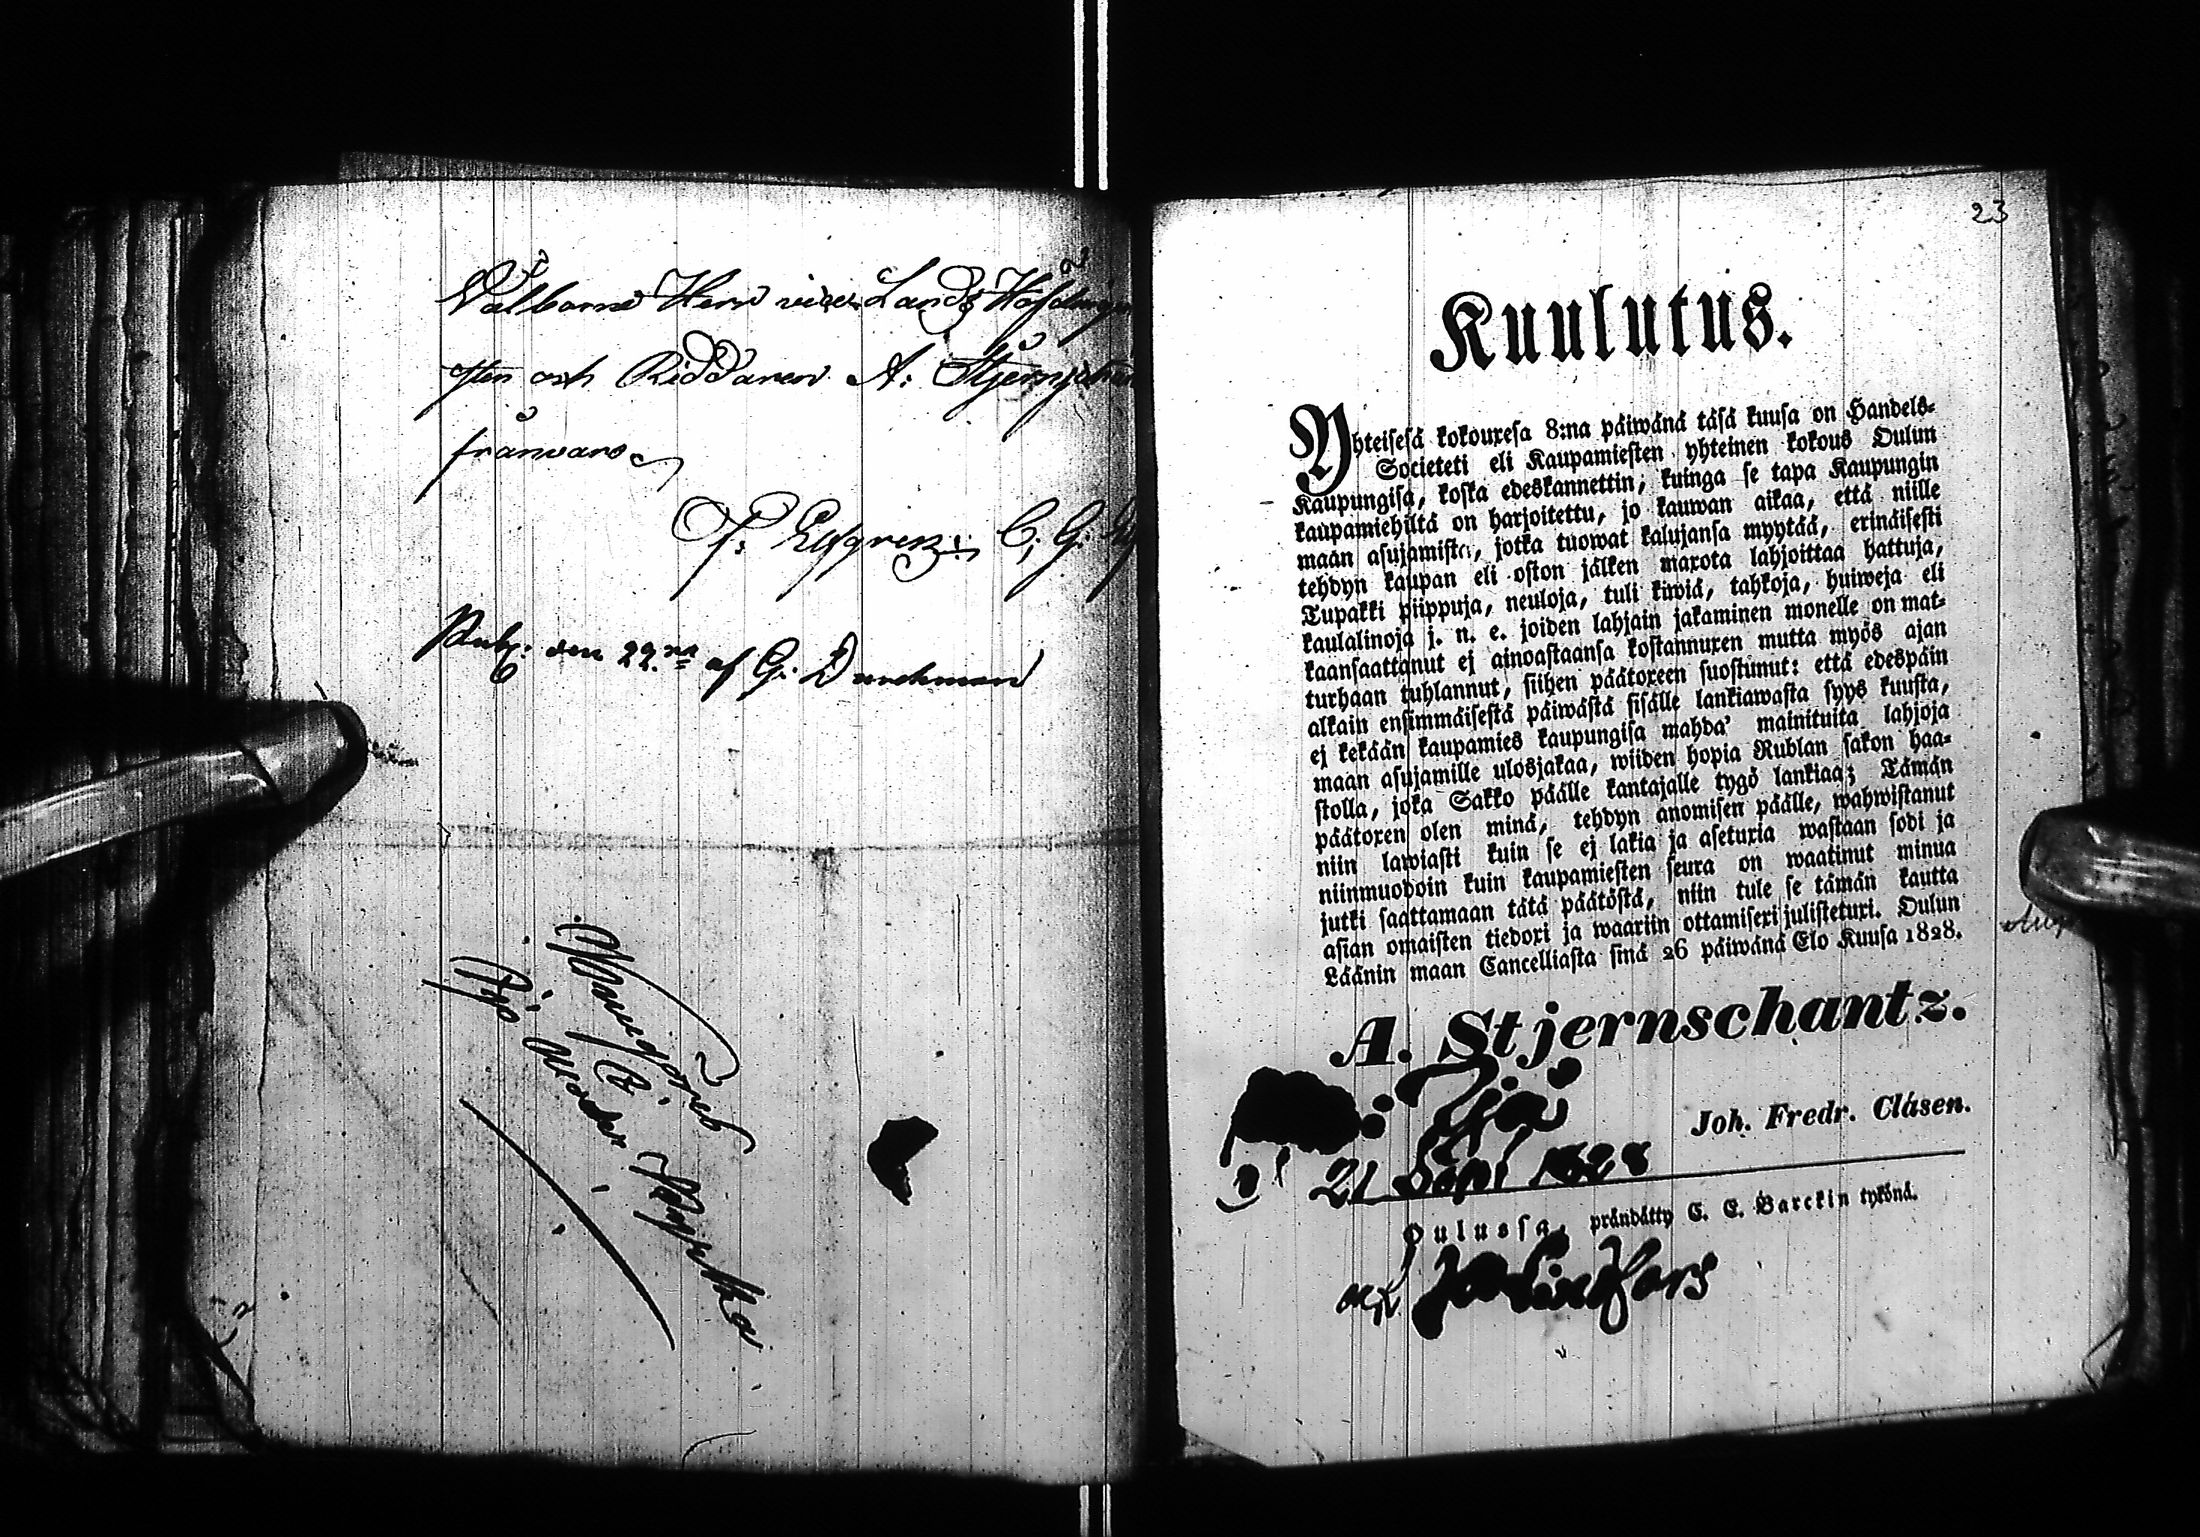 Wälborne Herr vice Lands Höfdinge
sten och Riddaren A:
frånvaro
C: G:
Publ: den 22:na af G: Durchman
23
Kuulutus.
Yhteisesä kokouxesa 8:na päiwänä täsä kuusa on Handels-
Societeti eli Kaupamiesten yhteinen kokous Oulun
Kaupungisa, koska edeskannettin, kuinga se tapa Kaupungin
kaupamiehiltä on harjoitettu, jo kauwan aikaa, että niille
maan asujamista, jotka tuowat kalujansa myytää, erinäisesti
tehdyn kaupan eli oston jälken maxota lahjoittaa hattuja,
Tupakki piippuja, neuloja, tuli kiwiä, tahkoja, huiweja eli
kaulalinoja j. n. e. joiden lahjain jakaminen monelle on mat-
kaansaattanut ej ainoastaansa kostannuxen mutta myös ajan
turhaan tuhlannut, siihen päätoxeen suostunut: että edespäin
alkain ensimmäisestä päiwästä sisälle lankiawasta syys kuusta,
ej kekään kaupamies kaupungisa mahda' mainituita lahjoja
maan asujamille ulosjakaa, wiiden hopia Rublan sakon haa-
stolla, joka Sakko päälle kantajalle tygö lankiaa; Tämän
päätoxen olen minä, tehdyn anomisen päälle, wahwistanut
niin lawiasti kuin se ej lakia ja asetuxia wastaan sodi ja
niinmuodoin kuin kaupamiesten seura on waatinut minua
jutki saattamaan tätä päätöstä, niin tule se tämän kautta
asian omaisten tiedoxi ja waariin ottamisexi julistetuxi. Oulun
Läänin maan Cancelliasta sinä 26 päiwänä Elo Kuusa 1828.
A. Stjernschantz.
Joh. Fredr. Clásen.
21 Sept 1828
Oulussa, prändätty C. E. Barckin tykönä.